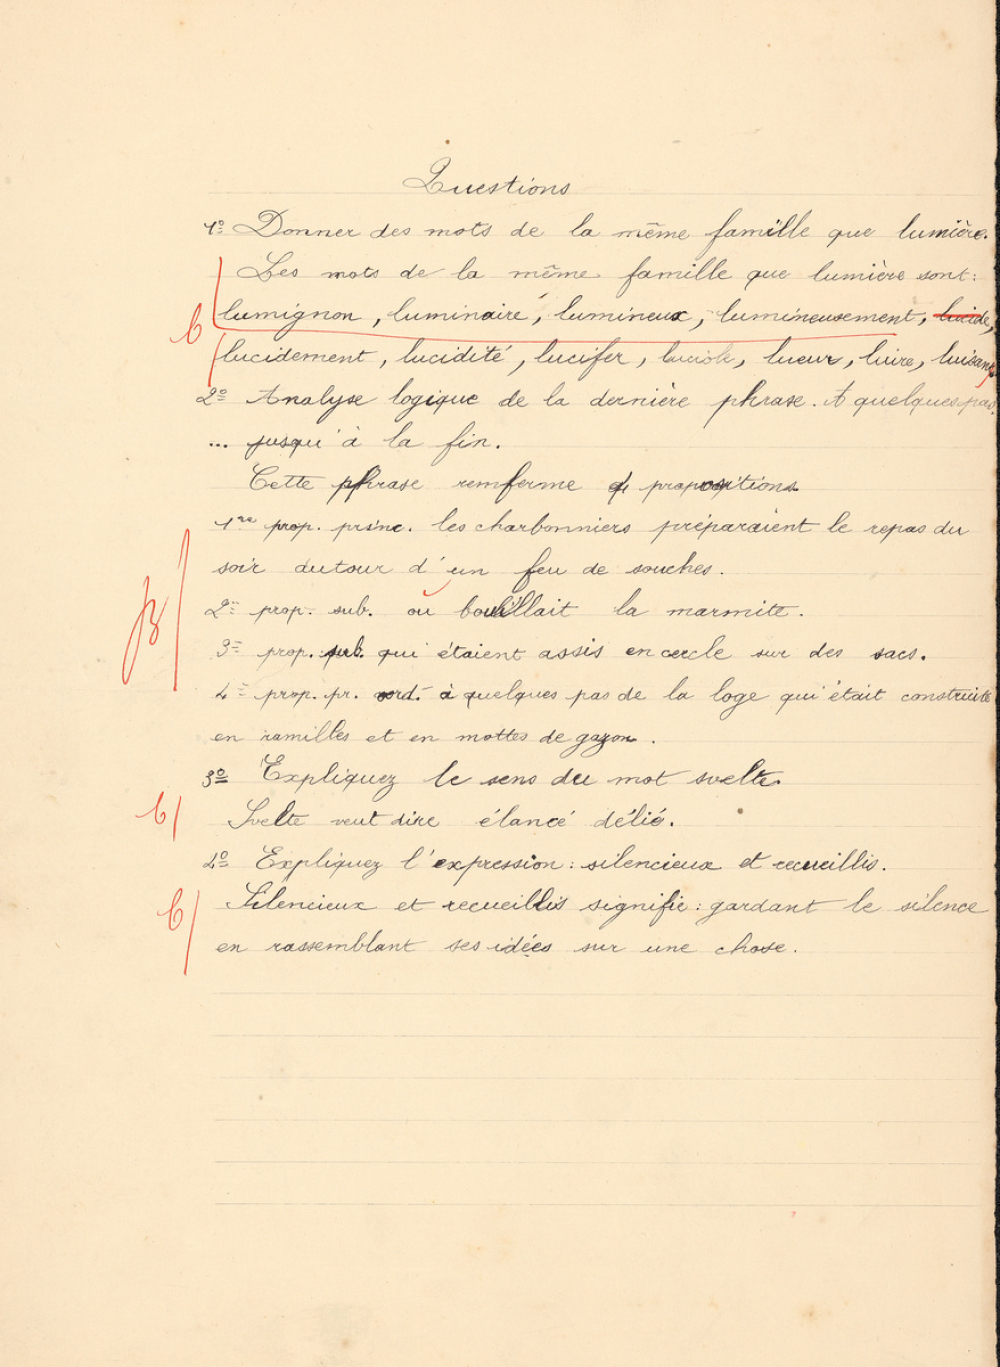 Questions
1º Donner des mots de la même famille que lumière.
Les mots de la même famille que lumière sont:
b lumignon, luminaire, lumineux, lumineusement, lucide,
lucidement, lucidité, lucifer, luciole, lueur, luire, luisant
2º Analyse logique de la dernière phrase. A quelques pas
... jusqu'à la fin.
Cette phrase renferme 4 propositions
1re prop. princ. les charbonniers préparaient le repas du
soir autour d'un feu de souches.
2e prop. sub. où bouillait la marmite.
B 3e prop. sub. qui étaient assis en cercle sur des sacs.
4e prop. pr. coord. à quelques pas de la loge qui était construite
en ramilles et en mottes de gazon.
3º Expliquez le sens du mot svelte.
b Svelte veut dire élancé délié.
4º Expliquez l'expression: silencieux et recueillis.
b Silencieux et recueillis signifie: gardant le silence
en rassemblant ses idées sur une chose.